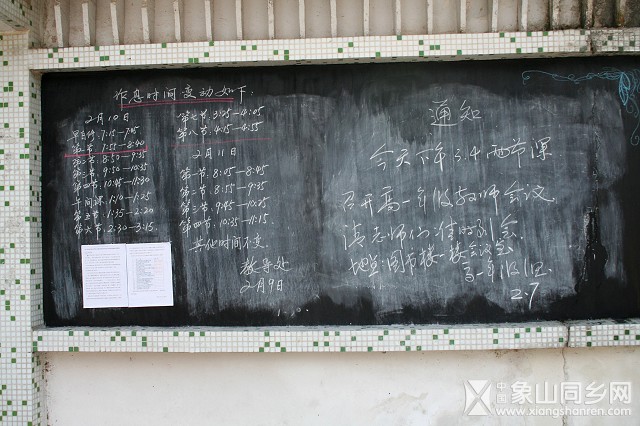 作息时间变动如下:
2月10日
早自修:7:15—7:45
第一节:7:55—8:40
第二节:8:50—9:35
第三节:9:50—10:35
第四节:10:45—11:30
午间课:1:10—1:25
第五节:1:35—2:20
第六节:2:30—3:15
第七节:3:25—4:05
第八节:4:15—4:55
2月11日
第一节:8:05—8:45
第二节:8:55—9:35
第三节:9:45—10:25
第四节:10:35—11:15
其他时间不变.
教导处
2月9日
通知
今天下午3.4两节课
召开高一年级教师会议
请老师们准时到会.
地点:图书楼一楼会议室
高一年级组
2.7
中国
象山同乡网
www.xiangshanren.com